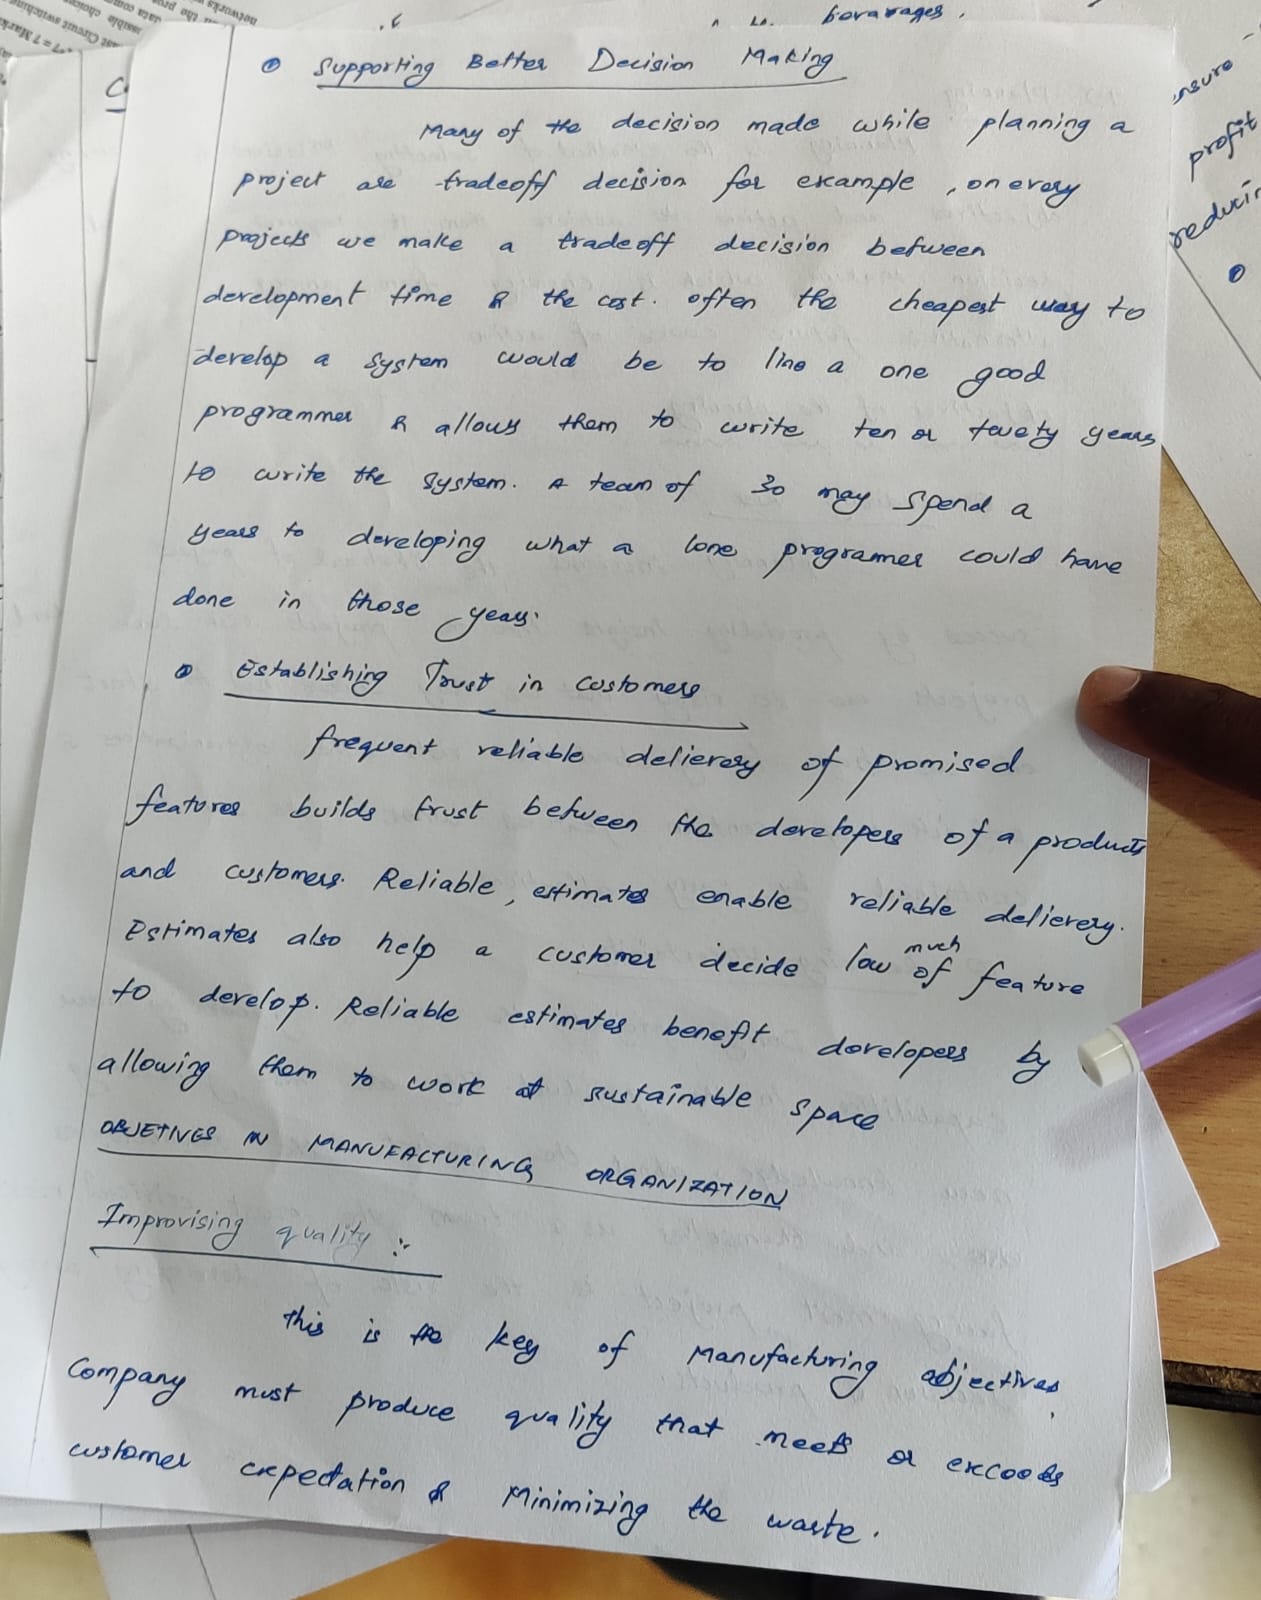 bevarages.
Supporting Better Decision Making
Many of the decision made while planning a
project are tradeoff decision for example, on every
projects we make a tradeoff decision between
development time & the cost. often the cheapest way to
develop a system would be to line a one good
programmer & allows them to write ten or twety years
to write the system. A team of 30 may spend a
years to developing what a lone programer could have
done in those years.
Establishing Trust in customers
frequent reliable delierery of promised
features builds trust between the developers of a products
and customers. Reliable, estimates enable reliable delierery.
Estimates also help a customer decide low much of feature
to develop. Reliable estimates benefit developers by
allowing them to work at sustainable space
OBJETIVES IN MANUFACTURING ORGANIZATION
Improvising quality :-
this is the key of Manufacturing objectives.
Company must produce quality that meets or exceeds
customer expectation & Minimizing the waste.
ensure
profit